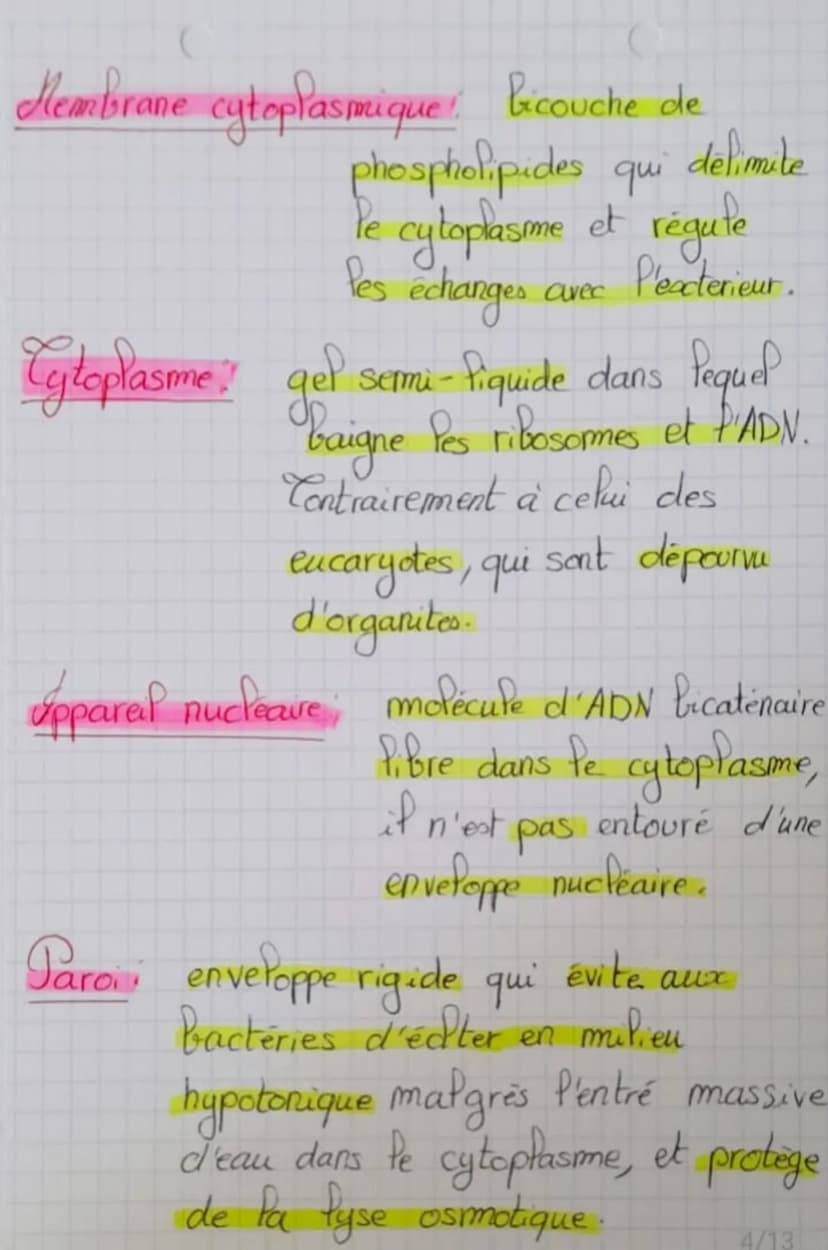 Membrane cytoplasmique: bicouche de
phospholipides qui délimite
le cytoplasme et régule
les échanges avec l'exterieur.
Cytoplasme: gel semi-liquide dans lequel
baigne les ribosomes et l'ADN.
Contrairement à celui des
eucaryotes, qui sont dépourvu
d'organites.
Appareil nucléaire: molécule d'ADN bicaténaire
libre dans le cytoplasme,
il n'est pas entouré d'une
enveloppe nucléaire.
Paroi: enveloppe rigide qui évite aux
bactéries d'éclter en milieu
hypotonique malgrès l'entré massive
d'eau dans le cytoplasme, et protège
de la lyse osmotique.
4/13